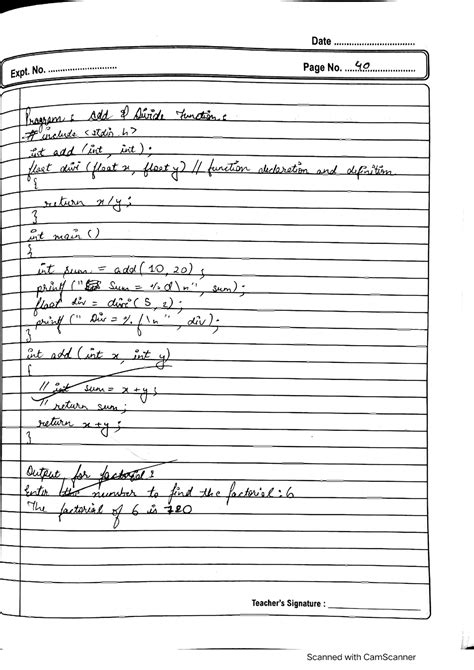 Date ........................
Expt. No. ........................
Page No. ....40............
Program : Add & Divide Function :
# include <stdio.h>
int add (int, int);
float divi (float x, float y) // function declaration and definition
{
return x/y;
}
int main ()
int sum = add(10, 20);
printf (" Sum = %d\n", sum);
float div = divi(5, 2);
printf (" Div = %f\n", div);
}
int add (int x, int y)
{
// int sum = x+y;
// return sum;
return x+y;
}
Output for factorial :
Enter the number to find the factorial : 6
The factorial of 6 is 720
Teacher's Signature :
Scanned with CamScanner